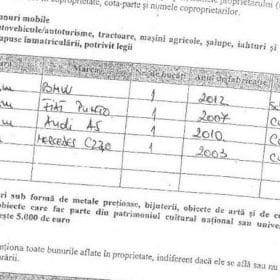 numele proprietarului
proprietate, cota-parte și numele coproprietarilor.
bunuri mobile
autovehicule/autoturisme, tractoare, mașini agricole, șalupe, iahturi și
supuse înmatriculării, potrivit legii
Marca Anul de fabricație
BMW 1 2012
FIAT PUNTO 1 2007
Audi A5 1 2010
MERCEDES C220 1 2003
sub formă de metale prețioase, bijuterii, obiecte de artă și de
obiecte care fac parte din patrimoniul cultural național sau
5.000 de euro
toate bunurile aflate în proprietate, indiferent dacă ele se află sau nu